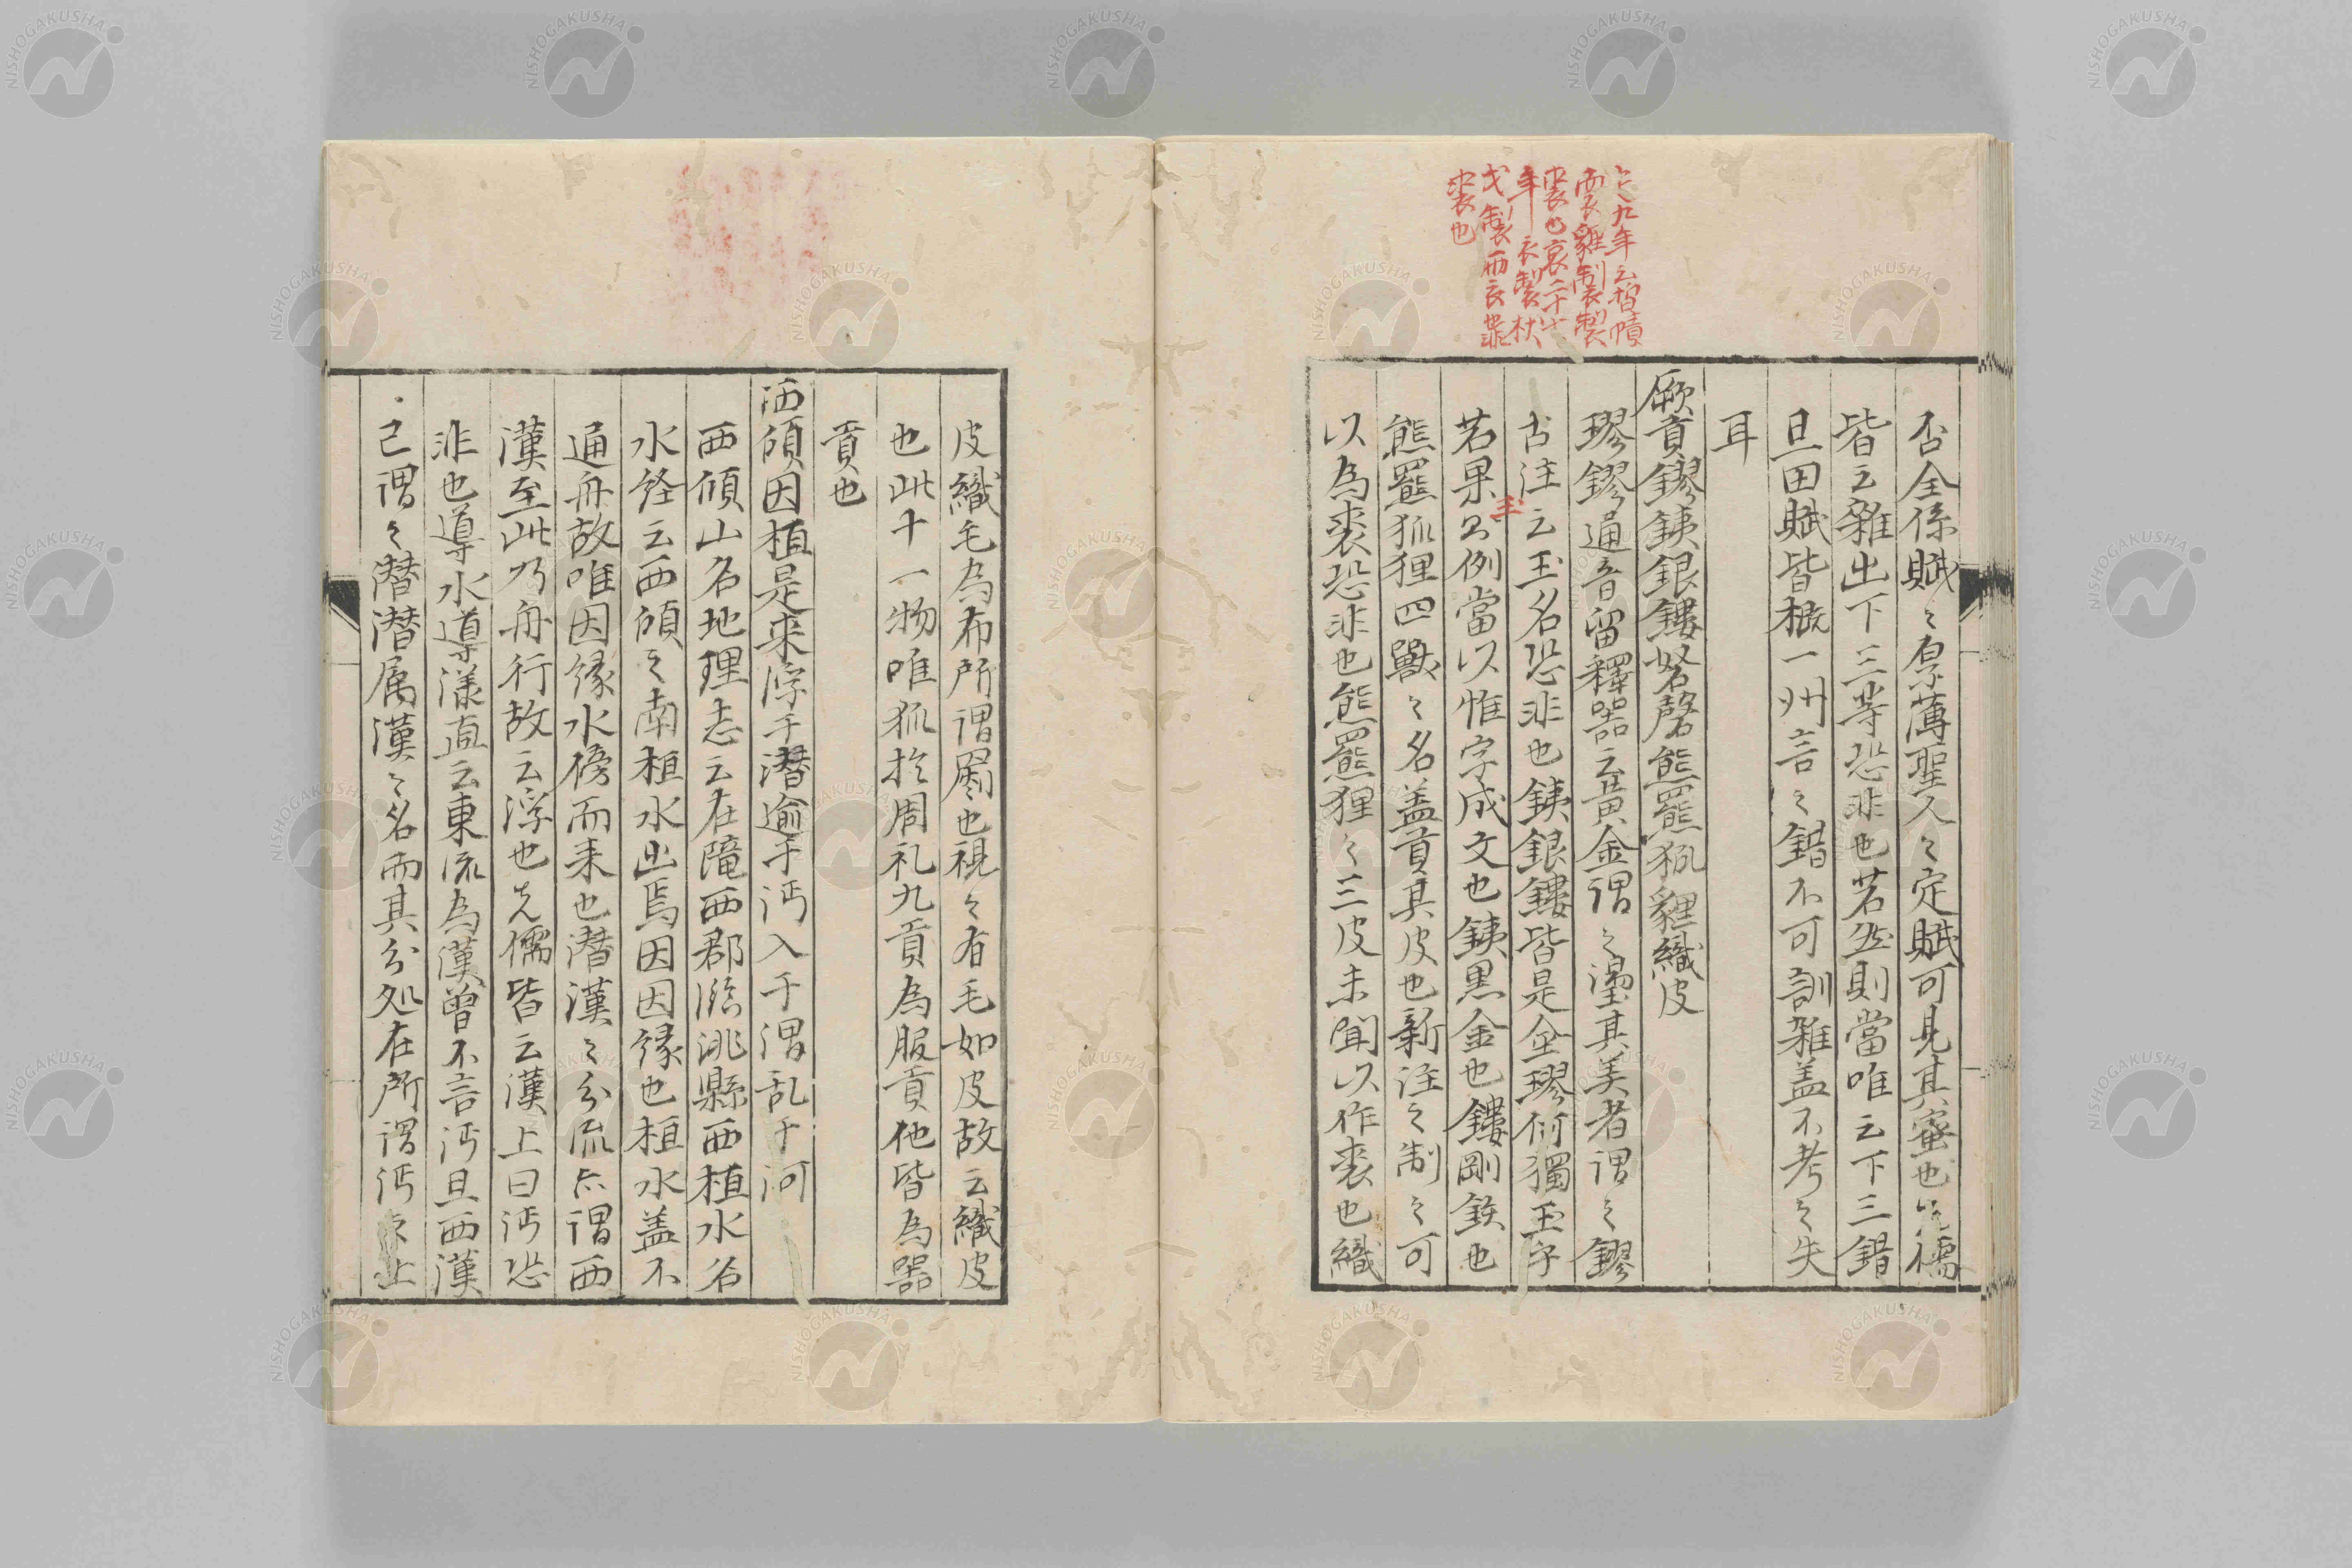 定九年云晳幘
而衣貍製製
裘也哀二十七
年衣製杖
戈製雨衣非
裘也
否全係賦〻原薄聖人〻定賦可見其蜜也先儒
皆云雜出下三等恐非也若然則當唯云下三錯
且田賦皆概一州言〻錯不可訓雜盖不考〻失
耳
厥貢鏐銕銀鏤砮磬熊羆狐貍織皮
璆鏐通音留釋器云黄金謂〻璗其美者謂〻鏐
古注云玉名恐非也銕銀鏤皆是金璆何獨玉乎
若果公例當以惟字成文也銕黒金也鏤剛鉄也
主
熊羆狐狸四獸〻名盖貢其皮也新注〻制〻可
以為裘恐非也熊羆狸〻三皮未聞以作裘也織
皮織毛為布所謂罽也視〻有毛如皮故云織皮
也此十一物唯狐於周礼九貢為服貢他皆為器
貢也
西傾因桓是来浮于潜逾于沔入于渭乱于河
西傾山名地理志云在隴西郡臨洮縣西桓水名
水経云西傾〻南桓水出焉因因縁也桓水盖不
通舟故唯因縁水傍而来也潜漢〻分流亦謂西
漢至此乃舟行故云浮也先儒皆云漢上曰沔恐
非也導水導漾直云東流為漢曾不言沔且西漢
已謂〻潜潜属漢〻名而其分処在所謂沔上